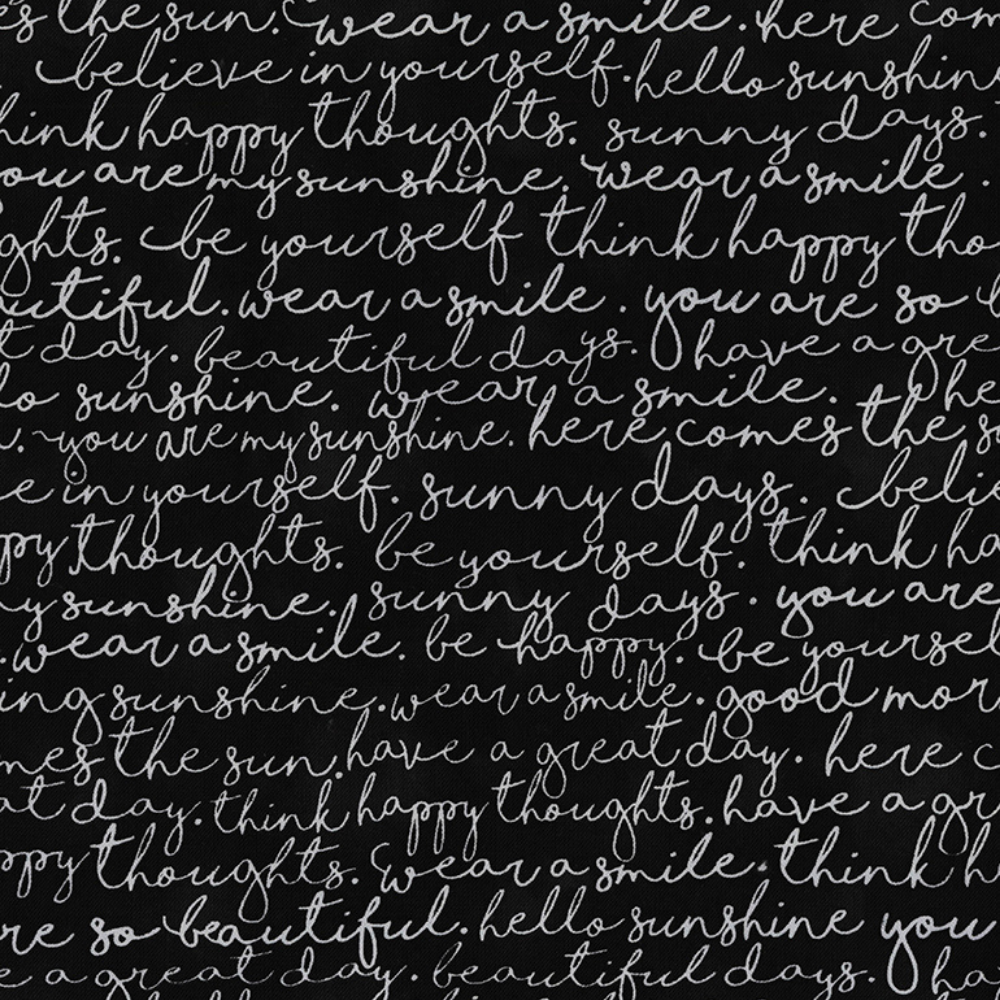 s the sun. wear a smile. here com
believe in yourself. hello sunshin
hink happy thoughts. sunny days.
ou are my sunshine. wear a smile.
ghts. be yourself think happy tho
utiful. wear a smile. you are so b
t day. beautiful days. have a gre
lo sunshine. wear a smile. the
. you are my sunshine. here comes the s
e in yourself. sunny days. belie
ppy thoughts. be yourself. think ha
y sunshine. sunny days. you are
. wear a smile. be happy. be yoursel
ing sunshine. wear a smile. good mor
mes the sun. have a great day. here c
at day. think happy thoughts. have a gr
ppy thoughts. wear a smile. think h
re so beautiful. hello sunshine you
e a great day. beautiful days. ha